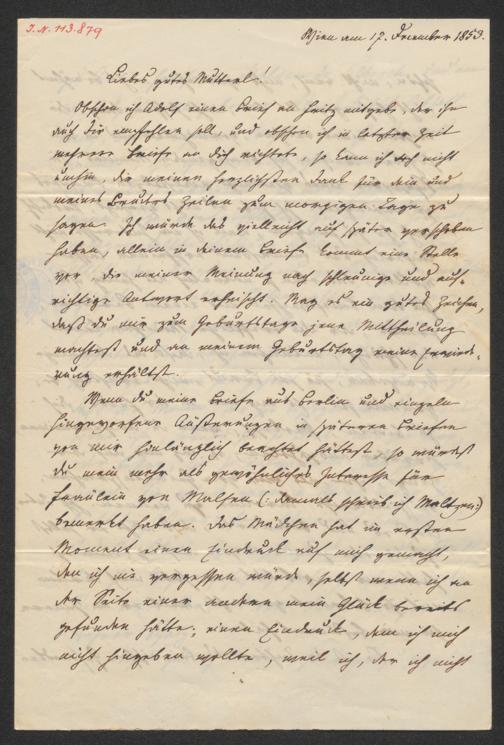 J.N. 113.879
Wien am 17. December 1853.
Liebes gutes Mutterl!
Obschon ich Adolf einen Brief an Fritz mitgebe, der ihn
auch dir empfehlen soll, und obschon ich in letzter Zeit
mehrere Briefe an dich richtete, so kann ich doch nicht
umhin, dir meinen herzlichsten Dank für dein und
meines Bruders Zeilen zum morgigen Tage zu
sagen. Ich würde das vielleicht auf später verschoben
haben, allein in deinem Briefe kommt eine Stelle
vor, die meiner Meinung nach schleunige und auf-
richtige Antwort erheischt. Mag es ein gutes Zeichen,
daß du mir zum Geburtstage jene Mittheilung
machtest und an meinem Geburtstag meine Erwiede-
rung erhältst.
Wenn du meine Briefe aus Berlin und einzeln
hingeworfene Äußerungen in späteren Briefen
von mir hinlänglich beachtet hättest, so würdest
du mein mehr als gewöhnliches Interesse für
Fräulein von Malsen (: damals schrieb ich Maltzen:)
bemerkt haben. Das Mädchen hat im ersten
Moment einen Eindruck auf mich gemacht,
den ich nie vergessen würde, selbst wenn ich an
der Seite einer anderen mein Glück bereits
gefunden hätte; einen Eindruck, dem ich mich
nicht hingeben wollte, weil ich, der ich nicht